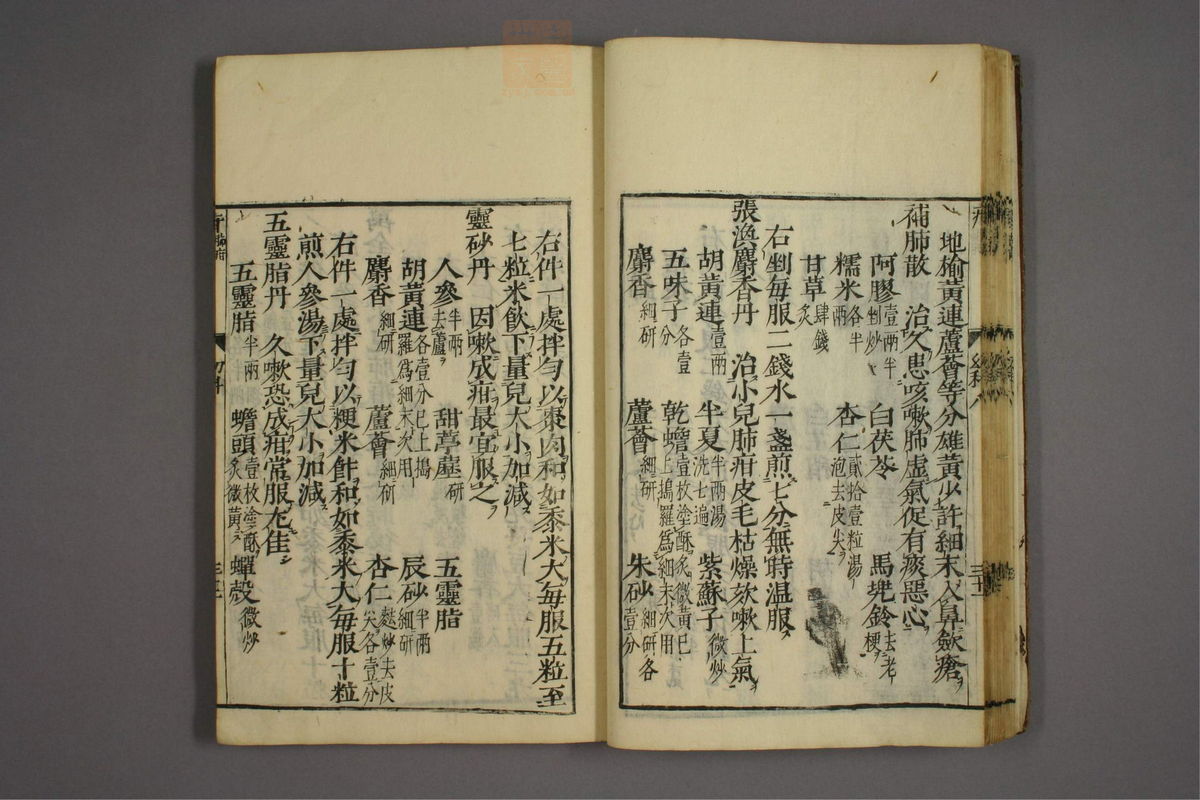 地榆黃連蘆薈等分雄黃少許細末入鼻歛瘡
補肺散　治久患咳嗽肺虛氣促有痰惡心
阿膠壹兩半剉炒　白茯苓　馬兜鈴去老梗
糯米各半兩　杏仁貳拾壹粒湯泡去皮尖
甘草肆錢炙
右剉每服二錢水一盞煎七分無時温服
張渙麝香丹　治小兒肺疳皮毛枯燥欬嗽上氣
胡黃連壹兩　半夏半兩湯洗七遍　紫蘇子微炒
五味子各壹分　乾蟾壹枚塗酥炙微黃巳上搗羅爲細末次用
麝香細研　蘆薈細研　朱砂細研各壹分
右件一處拌勻以棗肉和如黍米大每服五粒至
七粒米飲下量兒大小加减
靈砂丹　因嗽成疳最宜服之
人參半兩去蘆　甜葶藶研　五靈脂
胡黃連各壹分巳上搗羅爲細末次用　辰砂半兩細研
麝香細研　蘆薈細研　杏仁麩炒去皮尖各壹分
右件一處拌勻以粳米飰和如黍米大每服十粒
煎人參湯下量兒大小加减
五靈脂丹　久嗽恐成疳常服尤佳
五靈脂半兩　蟾頭壹枚塗酥炙微黃　蟬殼微炒